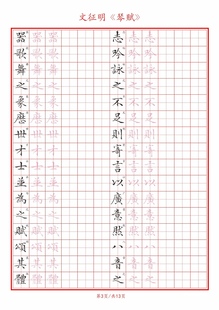 文征明《琴赋》
志吟詠之不足則寄言以廣意然八音之
器歌舞之象歷世才士並為之賦頌其體